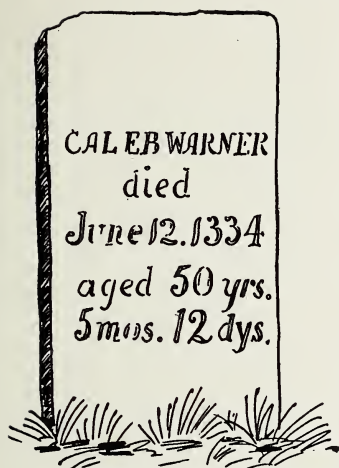 CALEB WARNER
died
June 12. 1334
aged 50 yrs.
5 mos. 12 dys.